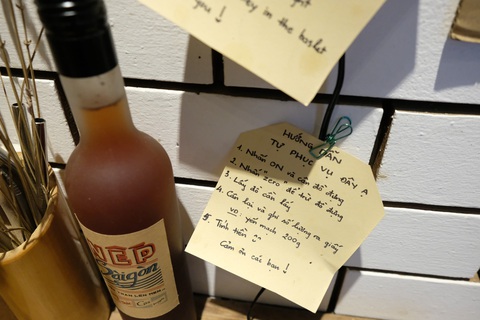 in the basket
you !
HƯỚNG DẪN
TỰ PHỤC VỤ ĐÂY Ạ
1. Nhấn ON và cân đồ đựng
2. Nhấn zero để trừ đồ đựng
3. Lấy đồ cần lấy
4. Cân lại và ghi số lượng ra giấy
VD: yến mạch 200g
5. Tính tiền
Cảm ơn các bạn !
NẾP
Saigon
LÊN MEN